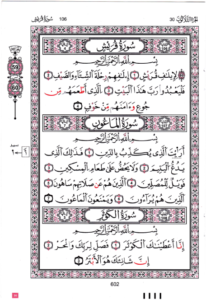 سُورَةُ قُرَيْشٍ
بِسْمِ اللَّهِ الرَّحْمَٰنِ الرَّحِيمِ
لِإِيلَافِ قُرَيْشٍ ۝ إِيلَافِهِمْ رِحْلَةَ الشِّتَاءِ وَالصَّيْفِ ۝
فَلْيَعْبُدُوا رَبَّ هَٰذَا الْبَيْتِ ۝ الَّذِي أَطْعَمَهُم مِّن
جُوعٍ وَآمَنَهُم مِّنْ خَوْفٍ ۝
سُورَةُ الْمَاعُونِ
بِسْمِ اللَّهِ الرَّحْمَٰنِ الرَّحِيمِ
أَرَأَيْتَ الَّذِي يُكَذِّبُ بِالدِّينِ ۝ فَذَٰلِكَ الَّذِي
يَدُعُّ الْيَتِيمَ ۝ وَلَا يَحُضُّ عَلَىٰ طَعَامِ الْمِسْكِينِ ۝
فَوَيْلٌ لِّلْمُصَلِّينَ ۝ الَّذِينَ هُمْ عَن صَلَاتِهِمْ سَاهُونَ ۝
الَّذِينَ هُمْ يُرَاءُونَ ۝ وَيَمْنَعُونَ الْمَاعُونَ ۝
سُورَةُ الْكَوْثَرِ
بِسْمِ اللَّهِ الرَّحْمَٰنِ الرَّحِيمِ
إِنَّا أَعْطَيْنَاكَ الْكَوْثَرَ ۝ فَصَلِّ لِرَبِّكَ وَانْحَرْ ۝
إِنَّ شَانِئَكَ هُوَ الْأَبْتَرُ ۝
602